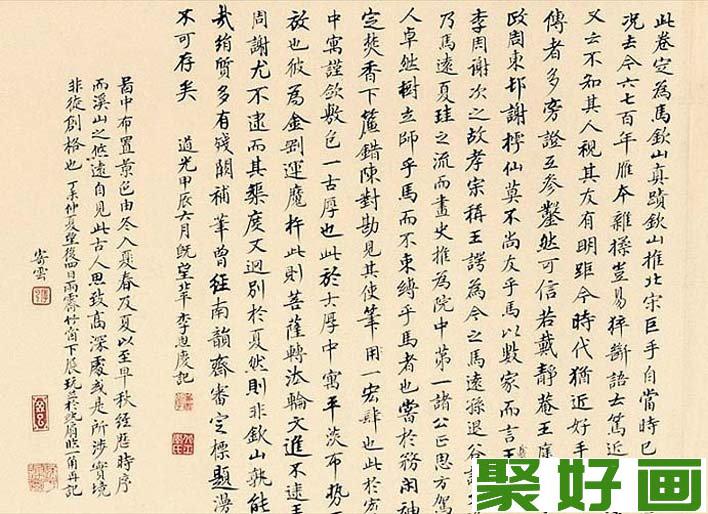 此卷定为馬欽山真蹟欽山推北宋巨手自當時已
况去今六七百年雁本雜揉豈易猝斷語云篤近
又云不知其人視其友有明距今時代猶近好手
傳者多旁證互参鑿然可信若戴靜菴王
政周東邨謝樗仙莫不尚友乎馬以數家而言王
李周謝次之故孝宗稱王諤為今之馬遠孫退谷
乃馬遠夏珪之流而畫史推為院中第一諸公正思方駕
人卓然樹立師乎馬而不束縛乎馬者也嘗於務閑神
定焚香下簾錯陳對勘見其使筆用一宏肆也此於宏
中寓謹飭敷色一古厚也此於古厚中寓平淡布勢一
放也彼為金剛運魔杵此則菩薩轉法輪文進不逮王
周謝尤不逮而其槼度又迥别於夏然則非欽山孰能
哉絹質多有殘闕補筆曾經南韻齋審定標題漫
不可存矣 道光甲辰六月既望北平李恩慶記
啚中布置景色由冬入夏春及夏以至早秋經歷時序
而溪山之悠遠自見此古人思致高深處或是所涉實境
非從創格也 丁未仲夏望後四日雨霽竹窗下展玩 一角再記
寄雲
聚好画